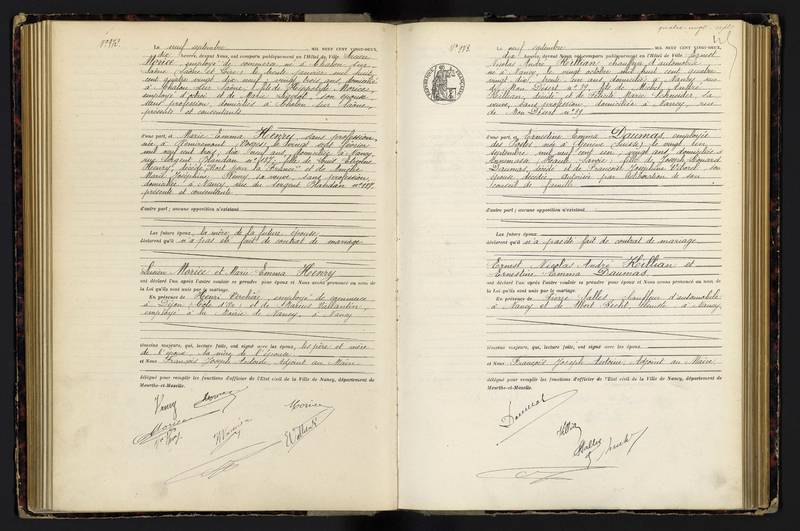 Le neuf septembre MIL NEUF CENT VINGT-DEUX,
dix heures, devant Nous, ont comparu publiquement en l'Hôtel de Ville Lucien
Morice employé de commerce né à Chalon sur
Saône (Saône et Loire) le trente janvier mil huit
cent quatre vingt dix neuf, vingt trois ans domicilié
à Chalon sur Saône, fils de Morice,
employé et de Marie son épouse
sans profession, domiciliés à Chalon sur Saône,
présents et consentants
d'une part, et Marie Emma Henry, sans profession,
née à Remiremont Vosges, le vingt sept février
mil neuf cent trois, dix neuf ans domiciliée à Nancy,
rue Sergent Blandan n° 117, fille de Louis
Henry, décédé "Mort pour la France" et de
Marie Joséphine sa veuve, sans profession,
domiciliée à Nancy rue du Sergent Blandan n° 117.
présente et consentante
d'autre part ; aucune opposition n'existant
Les futurs époux, la mère de la future épouse
déclarent qu'il n'a pas été fait de contrat de mariage
Lucien Morice et Marie Emma Henry
ont déclaré l'un après l'autre vouloir se prendre pour époux et Nous avons prononcé au nom de
la Loi qu'ils sont unis par le mariage.
En présence de Henri employé de commerce
à Dijon (Côte d'Or) et de Marius
employé à la Mairie de Nancy, à Nancy
témoins majeurs, qui, lecture faite, ont signé avec les époux, les père et mère
de l'époux, la mère de l'épouse
et Nous François Joseph Antoine Adjoint au Maire
délégué pour remplir les fonctions d'officier de l'Etat civil de la Ville de Nancy, département de
Meurthe-et-Moselle.
Morice
quatre-vingt-sept
Le neuf septembre MIL NEUF CENT VINGT-DEUX,
dix heures, devant Nous, ont comparu publiquement en l'Hôtel de Ville Ernest
Nicolas André Killian chauffeur d'automobile
né à Nancy, le vingt octobre mil huit cent quatre
vingt dix, trente un ans, domicilié à Nancy rue
de Mon Désert n° 29, fils de Michel
Killian, décédé, et de Marie Schneider, sa
veuve, sans profession domiciliée à Nancy, rue
de Mon Désert n° 29
d'une part, et Ernestine Emma Daumas, employée
des Postes, née à Genève (Suisse), le vingt un
septembre mil neuf cent un, vingt ans, domiciliée à
Annemasse Haute Savoie ; fille de Joseph Edouard
Daumas, décédé et de Françoise Joséphine son
épouse décédée, autorisée par délibération de son
conseil de famille
d'autre part ; aucune opposition n'existant
Les futurs époux
déclarent qu'il n'a pas été fait de contrat de mariage
Ernest Nicolas André Killian et
Ernestine Emma Daumas,
ont déclaré l'un après l'autre vouloir se prendre pour époux et Nous avons prononcé au nom de
la Loi qu'ils sont unis par le mariage.
En présence de Pierre Salles, chauffeur d'automobile
à Nancy et de Albert à Nancy,
témoins majeurs, qui, lecture faite, ont signé avec les époux
et Nous François Joseph Antoine, Adjoint au Maire
délégué pour remplir les fonctions d'officier de l'Etat civil de la Ville de Nancy, département de
Meurthe-et-Moselle.
Daumas
Killian
Salles